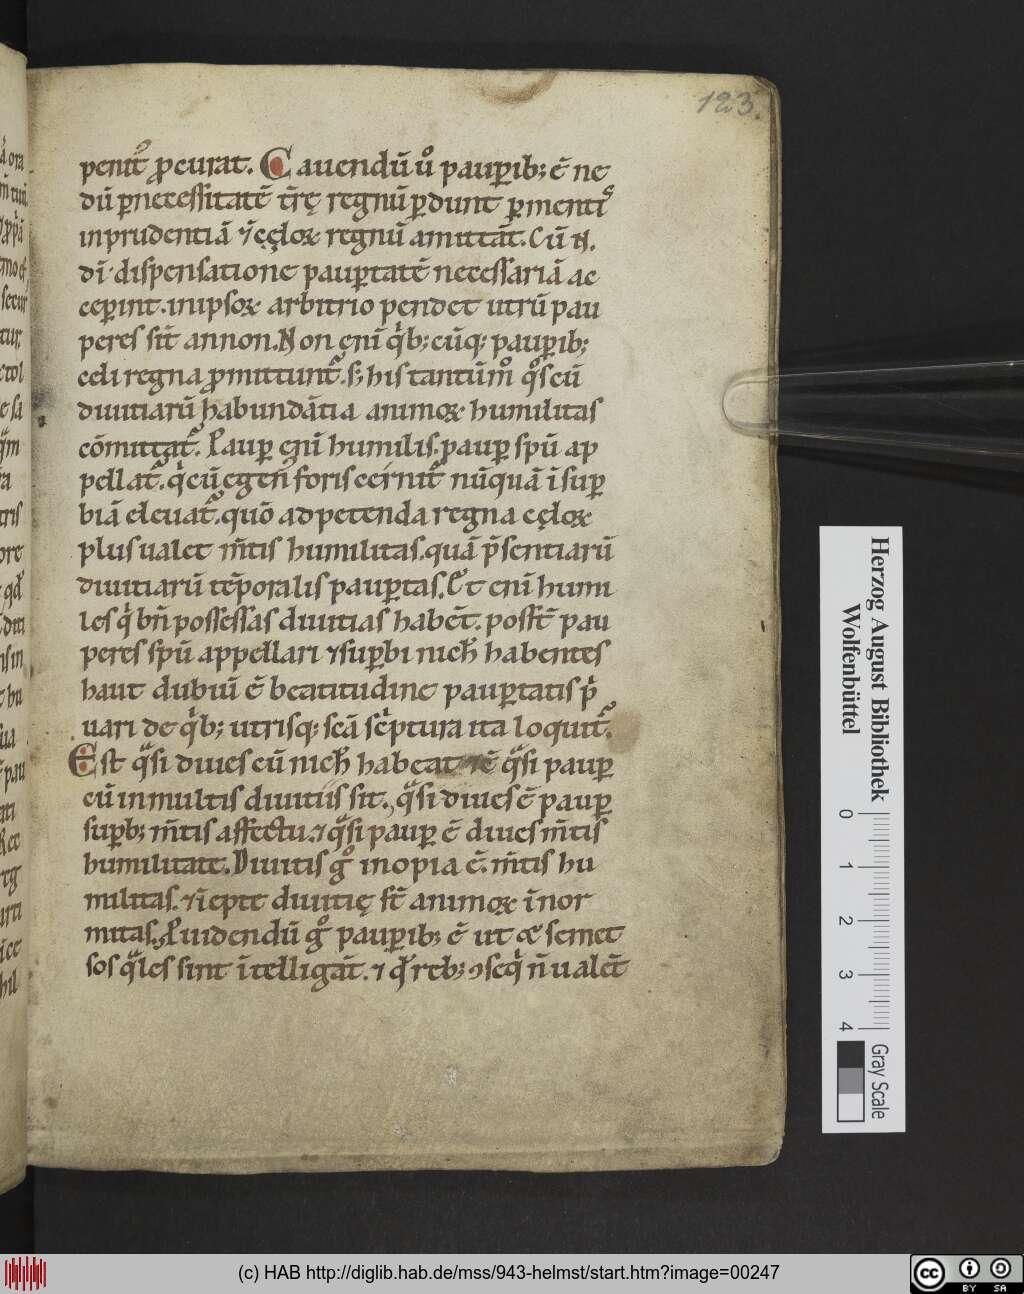 123.
penit᷒ ꝓcurat. Cauendū ů pauꝑib; ē ne
dū ꝑ necessitatē t̄rę regnū ꝑdunt ꝑ menti᷒
inprudentiā ⁊ cęloꝝ regnū amittāt. Cū .N.
dī dispensatione pauꝑtatē necessariā ac
ceꝑint. in ipsoꝝ arbitrio pendet utrū pau
peres sīt an non. Non enī qͥb; cūq; pauꝑib;
celi regna ꝓmittunt᷒. s; his tantūmͦ qͦs cū
diuitiarū habundātia animoꝝ humilitas
cōmittat᷒. Pauꝑ enī humilis. pauꝑ spū ap
pellat᷒. qͥ cū egen᷒ foris cernit᷒ nūquā ī suꝑ
biā eleuat᷒. quō ad petenda regna cęloꝝ
plus ualet m̄tis humilitas. quā p̄sentiarū
diuitiarū tēporalis pauꝑtas. Et enī humi
les qͥ bn̄ possessas diuitias habēt. posst̄ pau
peres spū appellari ⁊ suꝑbi nich̄ habentes
haut dubiū ē beatitudine pauꝑtatis pͥ
uari de qͥb; utrisq; sc̄a scͥptura ita loquit᷒.
Est qͣsi diues cū nich̄ habeat ⁊ ē qͣsi pauꝑ
cū in multis diuitiis sit. qͣsi diues ē pauꝑ
suꝑb; m̄tis affectu. ⁊ qͣsi pauꝑ ē diues m̄tis
humilitate. Diuitis gͦ inopia ē. m̄tis hu
militas. ⁊ īepte diuitię st̄ animoꝝ īnor
mitas. Puidendū gͦ pauꝑib; ē ut &semet
sos qͣles sint ītelligāt. ⁊ qͣ reb; ↄseqͥ n̄ ualēt
Herzog August Bibliothek
Wolfenbüttel
0 1 2 3 4
Gray Scale
(c) HAB http://diglib.hab.de/mss/943-helmst/start.htm?image=00247
cc BY SA